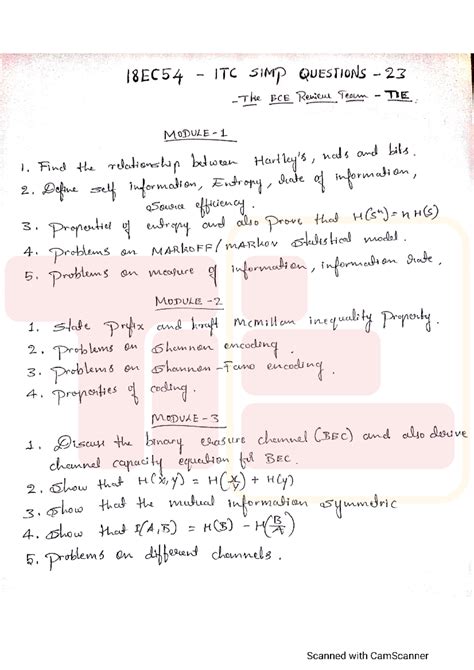 18EC54 - ITC SIMP QUESTIONS - 23
- The ECE Review Team - TIE.
MODULE-1
1. Find the relationship between Hartley's, nats and bits.
2. Define self information, Entropy, Rate of information,
Source efficiency.
3. Properties of entropy and also Prove that H(Sⁿ) = n H(S)
4. Problems on MARKOFF/MARKOV Statistical model.
5. Problems on measure of information, information Rate.
MODULE-2
1. State Prefix and Kraft McMillan inequality Property.
2. Problems on Shannon encoding.
3. Problems on Shannon-Fano encoding.
4. Properties of coding.
MODULE-3
1. Discuss the binary erasure channel (BEC) and also derive
channel capacity equation for BEC.
2. Show that H(X,Y) = H(X/Y) + H(Y)
3. Show that the mutual information symmetric
4. Show that I(A,B) = H(B) - H(B/A)
5. Problems on different channels.
TIE
Scanned with CamScanner